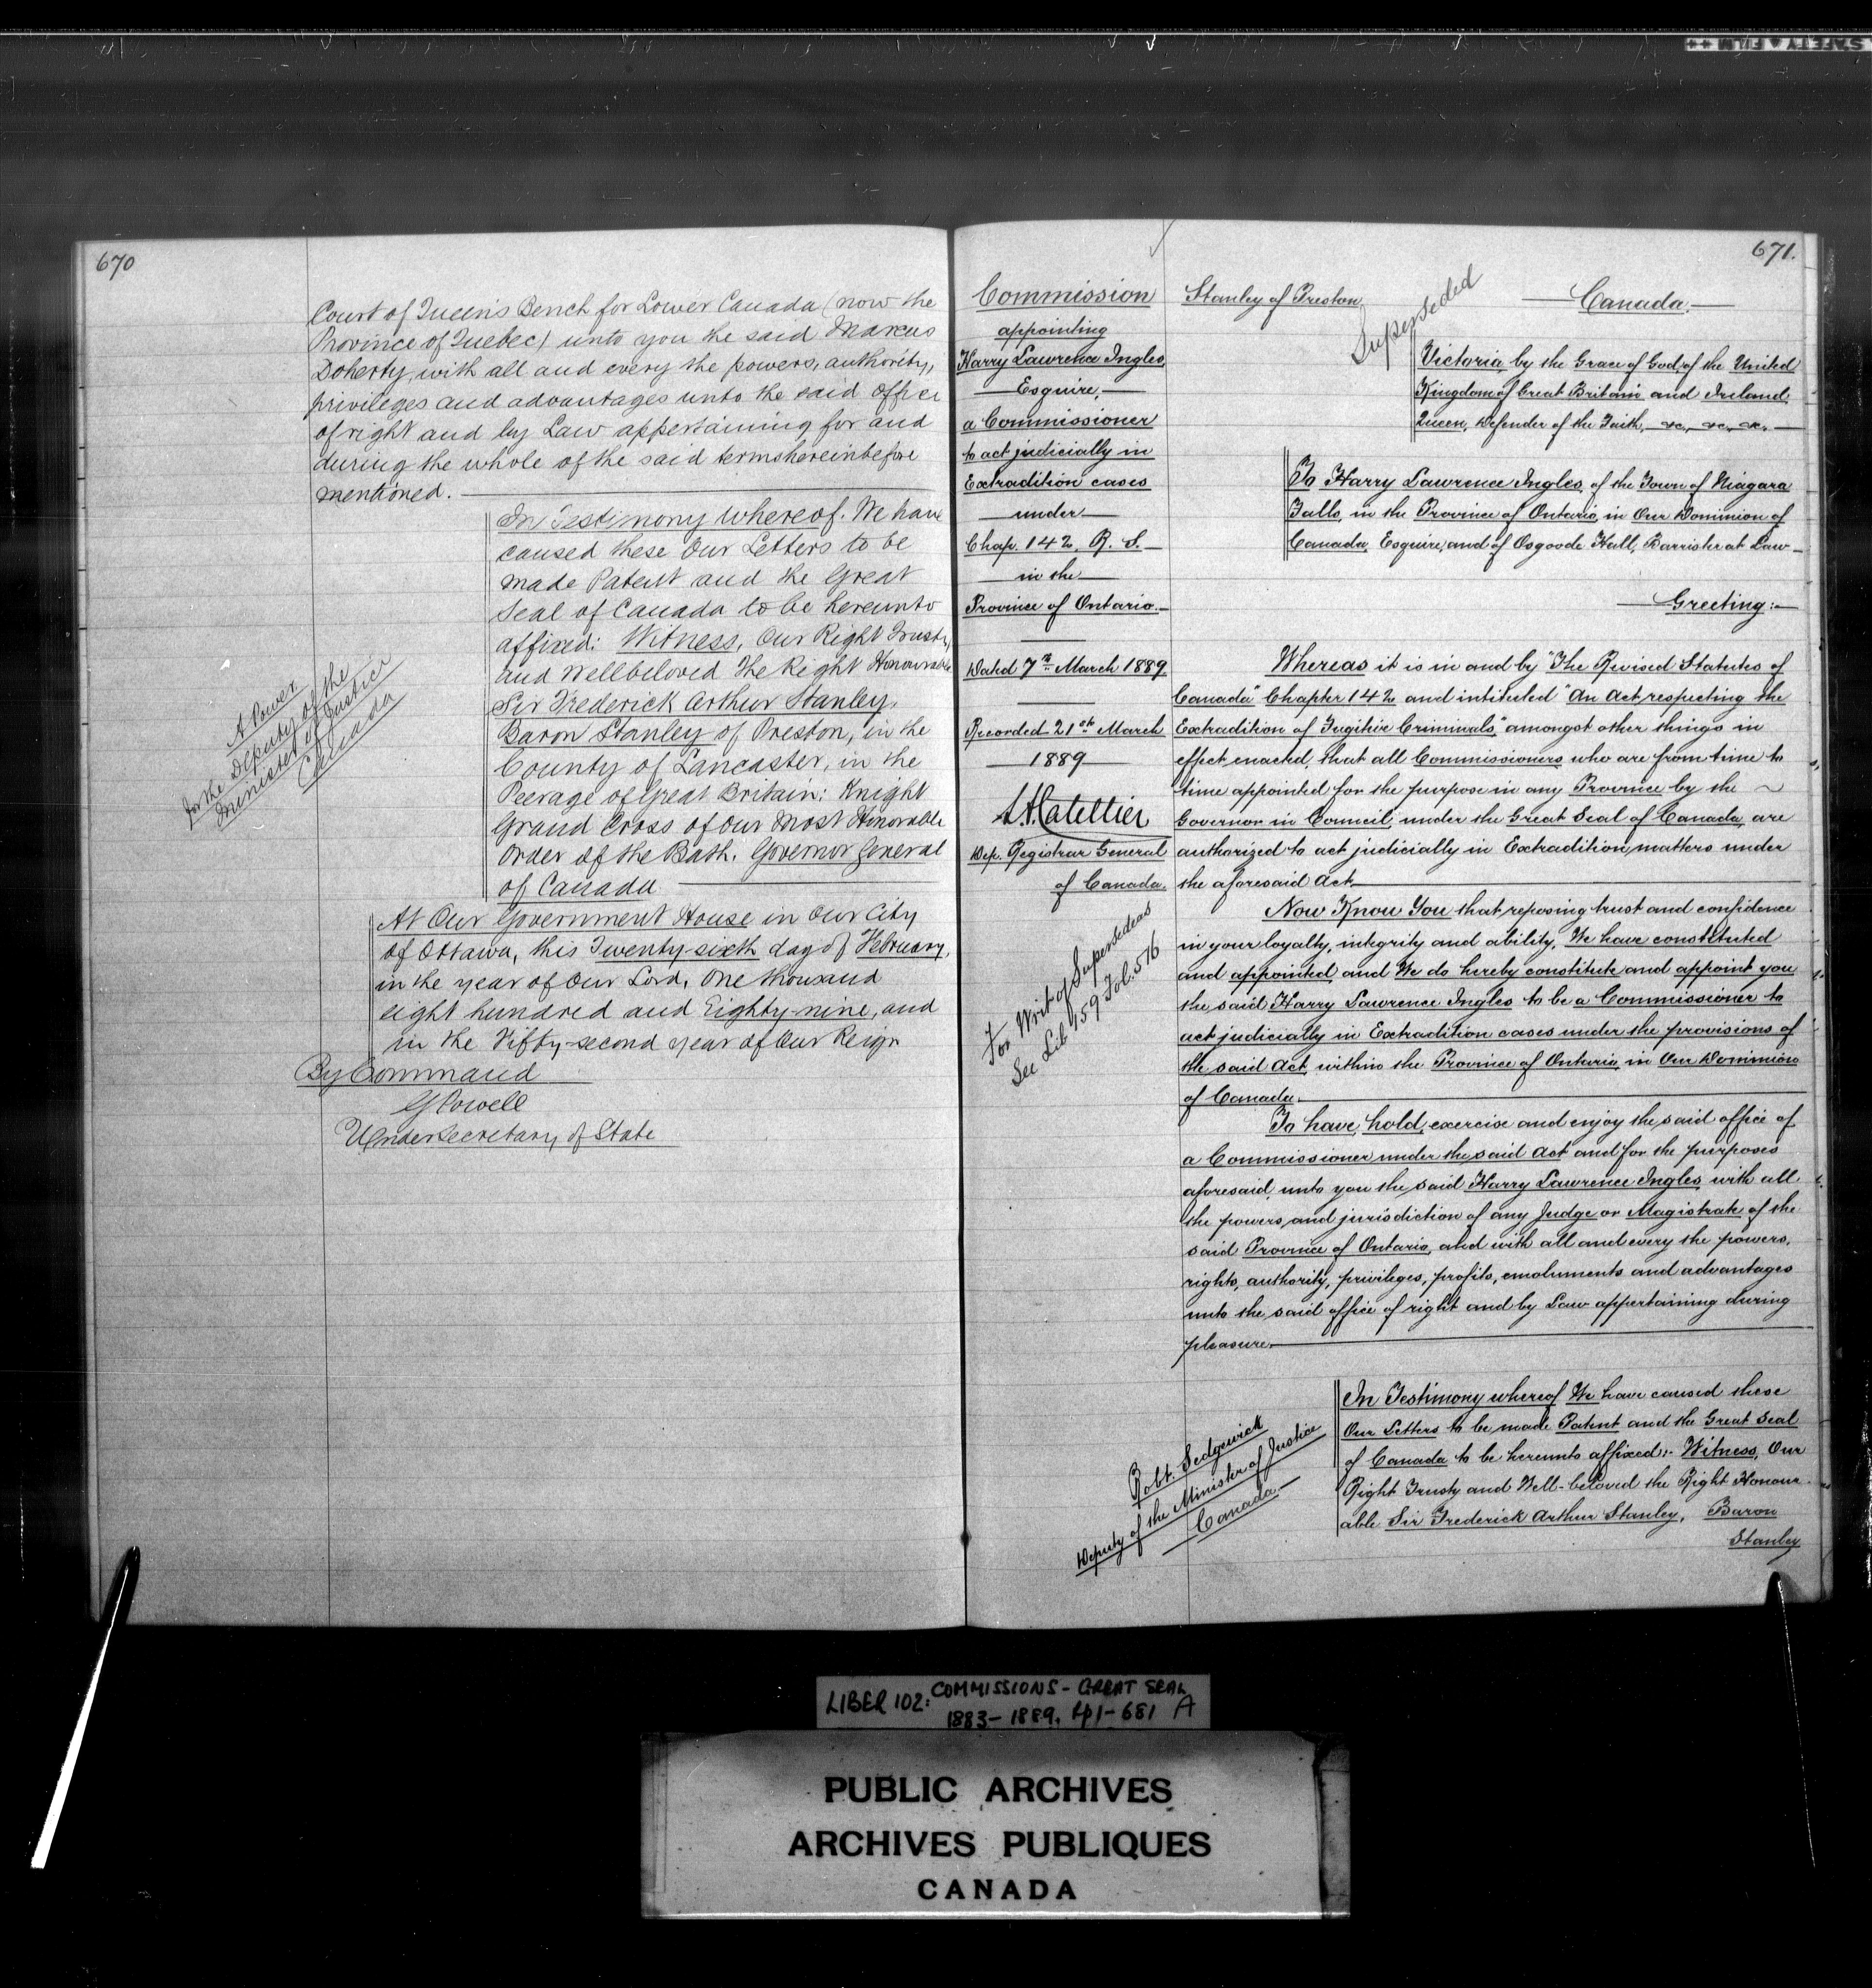 670
Court of Queen's Bench for Lower Canada (now the
Province of Quebec) unto you the said Marcus
Doherty, with all and every the powers, authority,
privileges and advantages unto the said Office
of right and by Law appertaining for and
during the whole of the said terms hereinbefore
mentioned.
In Testimony Whereof. We have
caused these Our Letters to be
made Patent and the Great
Seal of Canada to be hereunto
affixed: Witness, Our Right Trusty
and Wellbeloved The Right Honourable
Sir Frederick Arthur Stanley,
Baron Stanley of Preston, in the
County of Lancaster, in the
Peerage of Great Britain: Knight
Grand Cross of Our Most Honorable
Order of the Bath. Governor General
of Canada
At Our Government House in Our City
of Ottawa, this Twenty-sixth day of February,
in the year of Our Lord, One thousand
eight hundred and Eighty-nine, and
in the Fifty-second year of Our Reign
By Command
G Powell
Under Secretary of State
A Power
for the Deputy of the
Minister of Justice
Canada
671.
Commission
appointing
Harry Lawrence Ingles,
Esquire,
a Commissioner
to act judicially in
Extradition cases
under
Chap. 142, R. S.
in the
Province of Ontario.
Dated 7th March 1889.
Recorded 21st March
1889
L.A. Catellier
Dep. Registrar General
of Canada.
For Writ of Supersedeas
See Lib 159 Fol. 516
Stanley of Preston,
Superseded
Canada.
Victoria, by the Grace of God, of the United
Kingdom of Great Britain and Ireland,
Queen, Defender of the Faith, &c., &c., &c.
To Harry Lawrence Ingles, of the Town of Niagara
Falls, in the Province of Ontario, in Our Dominion of
Canada, Esquire, and of Osgoode Hall, Barrister at Law
Greeting:
Whereas it is in and by "The Revised Statutes of
Canada" Chapter 142 and intituled "An Act respecting the
Extradition of Fugitive Criminals," amongst other things in
effect enacted, that all Commissioners who are from time to
time appointed for the purpose in any Province by the
Governor in Council, under the Great Seal of Canada, are
authorized to act judicially in Extradition matters under
the aforesaid Act.
Now Know You that reposing trust and confidence
in your loyalty, integrity and ability, We have constituted
and appointed, and We do hereby constitute and appoint you
the said Harry Lawrence Ingles to be a Commissioner to
act judicially in Extradition cases under the provisions of
the said Act, within the Province of Ontario, in Our Dominion
of Canada.
To have, hold, exercise and enjoy the said office of
a Commissioner under the said Act and for the purposes
aforesaid, unto you the said Harry Lawrence Ingles, with all
the powers, and jurisdiction of any Judge or Magistrate of the
said Province of Ontario, and with all and every the powers,
rights, authority, privileges, profits, emoluments and advantages
unto the said office of right and by Law appertaining during
pleasure.
Robt. Sedgewick
Deputy of the Minister of Justice
Canada.
In Testimony whereof We have caused these
Our Letters to be made Patent and the Great Seal
of Canada to be hereunto affixed:- Witness, Our
Right Trusty and Well-beloved the Right Honour-
able Sir Frederick Arthur Stanley, Baron
Stanley
LIBER 102: COMMISSIONS - GREAT SEAL
1883-1889, pp1-681 A
PUBLIC ARCHIVES
ARCHIVES PUBLIQUES
CANADA
SAFETY FILM